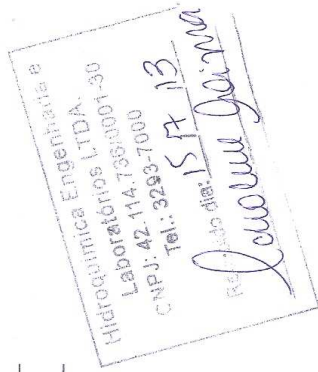 Hidroquímica Engenharia e
Laboratórios LTDA.
CNPJ: 42.114.739/0001-30
Tel.: 3293-7000
do dia: 15 17 13